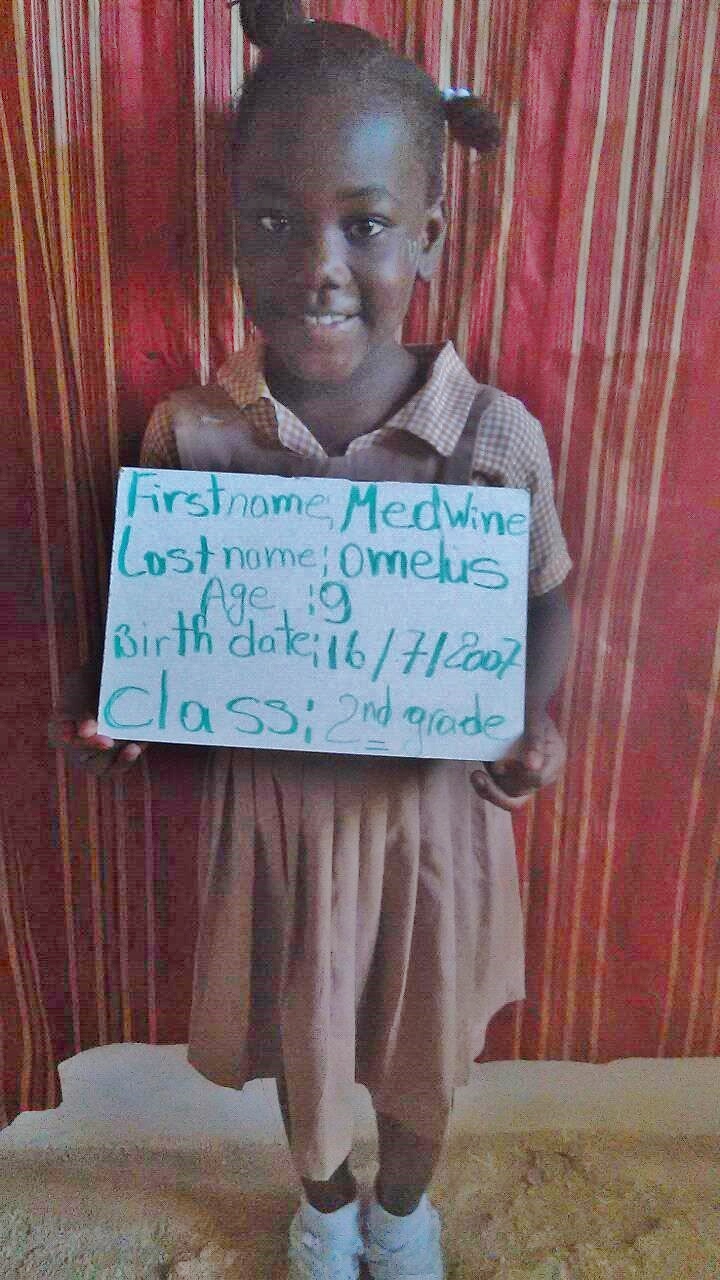 First name; Medwine
Last name; omelus
Age :9
Birth date; 16/7/2007
Class; 2nd grade